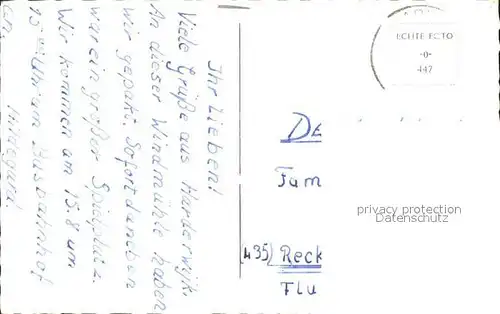 Ihr Lieben!
Viele Grüße aus Harderwijk.
An dieser Windmühle haben
wir gepakt. Sofort daneben
war ein großer Spielplatz.
Wir kommen am 15.8 um
15 Uhr am Busbahnhof
an.
Hildegard
ECHTE FOTO
-0-
447
DE
Fam
privacy protection
Datenschutz
(435) Reck
Flu